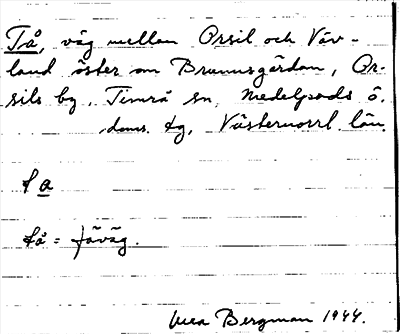 Tå, väg mellan Orsil och Väv-
land öster om Brunnsgården, Or-
sils by, Timrå sn, Medelpads ö.
doms. dg, Västernorrl. län.
fa
få = fäväg.
Bergman 1944.